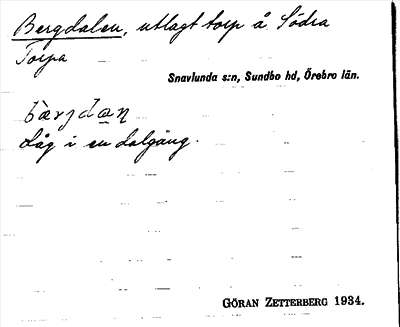 Bergdalen, utlagt torp å Södra
Torpa
Snavlunda s:n, Sundbo hd, Örebro län.
bàrjdaṉ
Låg i en dalgång.
GÖRAN ZETTERBERG 1934.